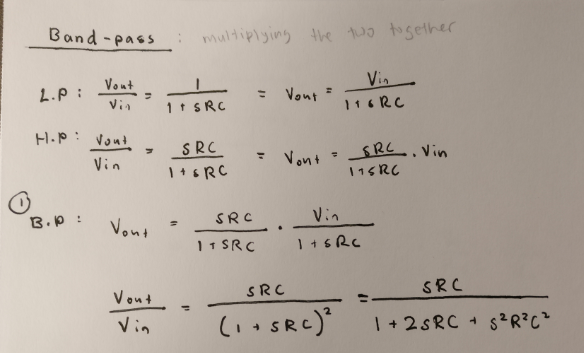 Band-pass : multiplying the two together
L.P : Vout/Vin = 1/(1 + SRC) = Vout = Vin/(1 + SRC)
H.P : Vout/Vin = SRC/(1 + SRC) = Vout = SRC/(1 + SRC) . Vin
①
B.P : Vout = SRC/(1 + SRC) . Vin/(1 + SRC)
Vout/Vin = SRC/(1 + SRC)² = SRC/(1 + 2SRC + S²R²C²)